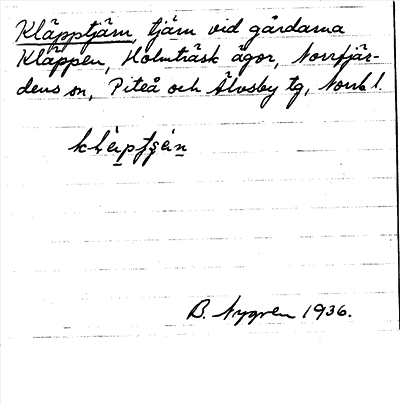 Kläpptjärn, tjärn vid gårdarna
Kläppen, Holmträsk ägor, Norrfjär-
dens sn, Piteå och Älvsby tg, Norrb l.
B. Nygren 1936.